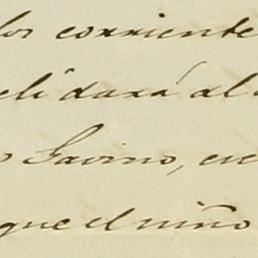 los corriente
dará al
Gavino, en
que el niño